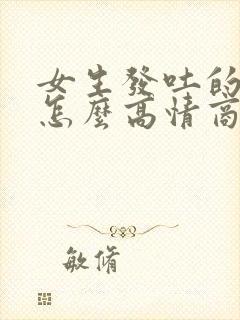 女生發吐的
怎麼高情商
敏脩